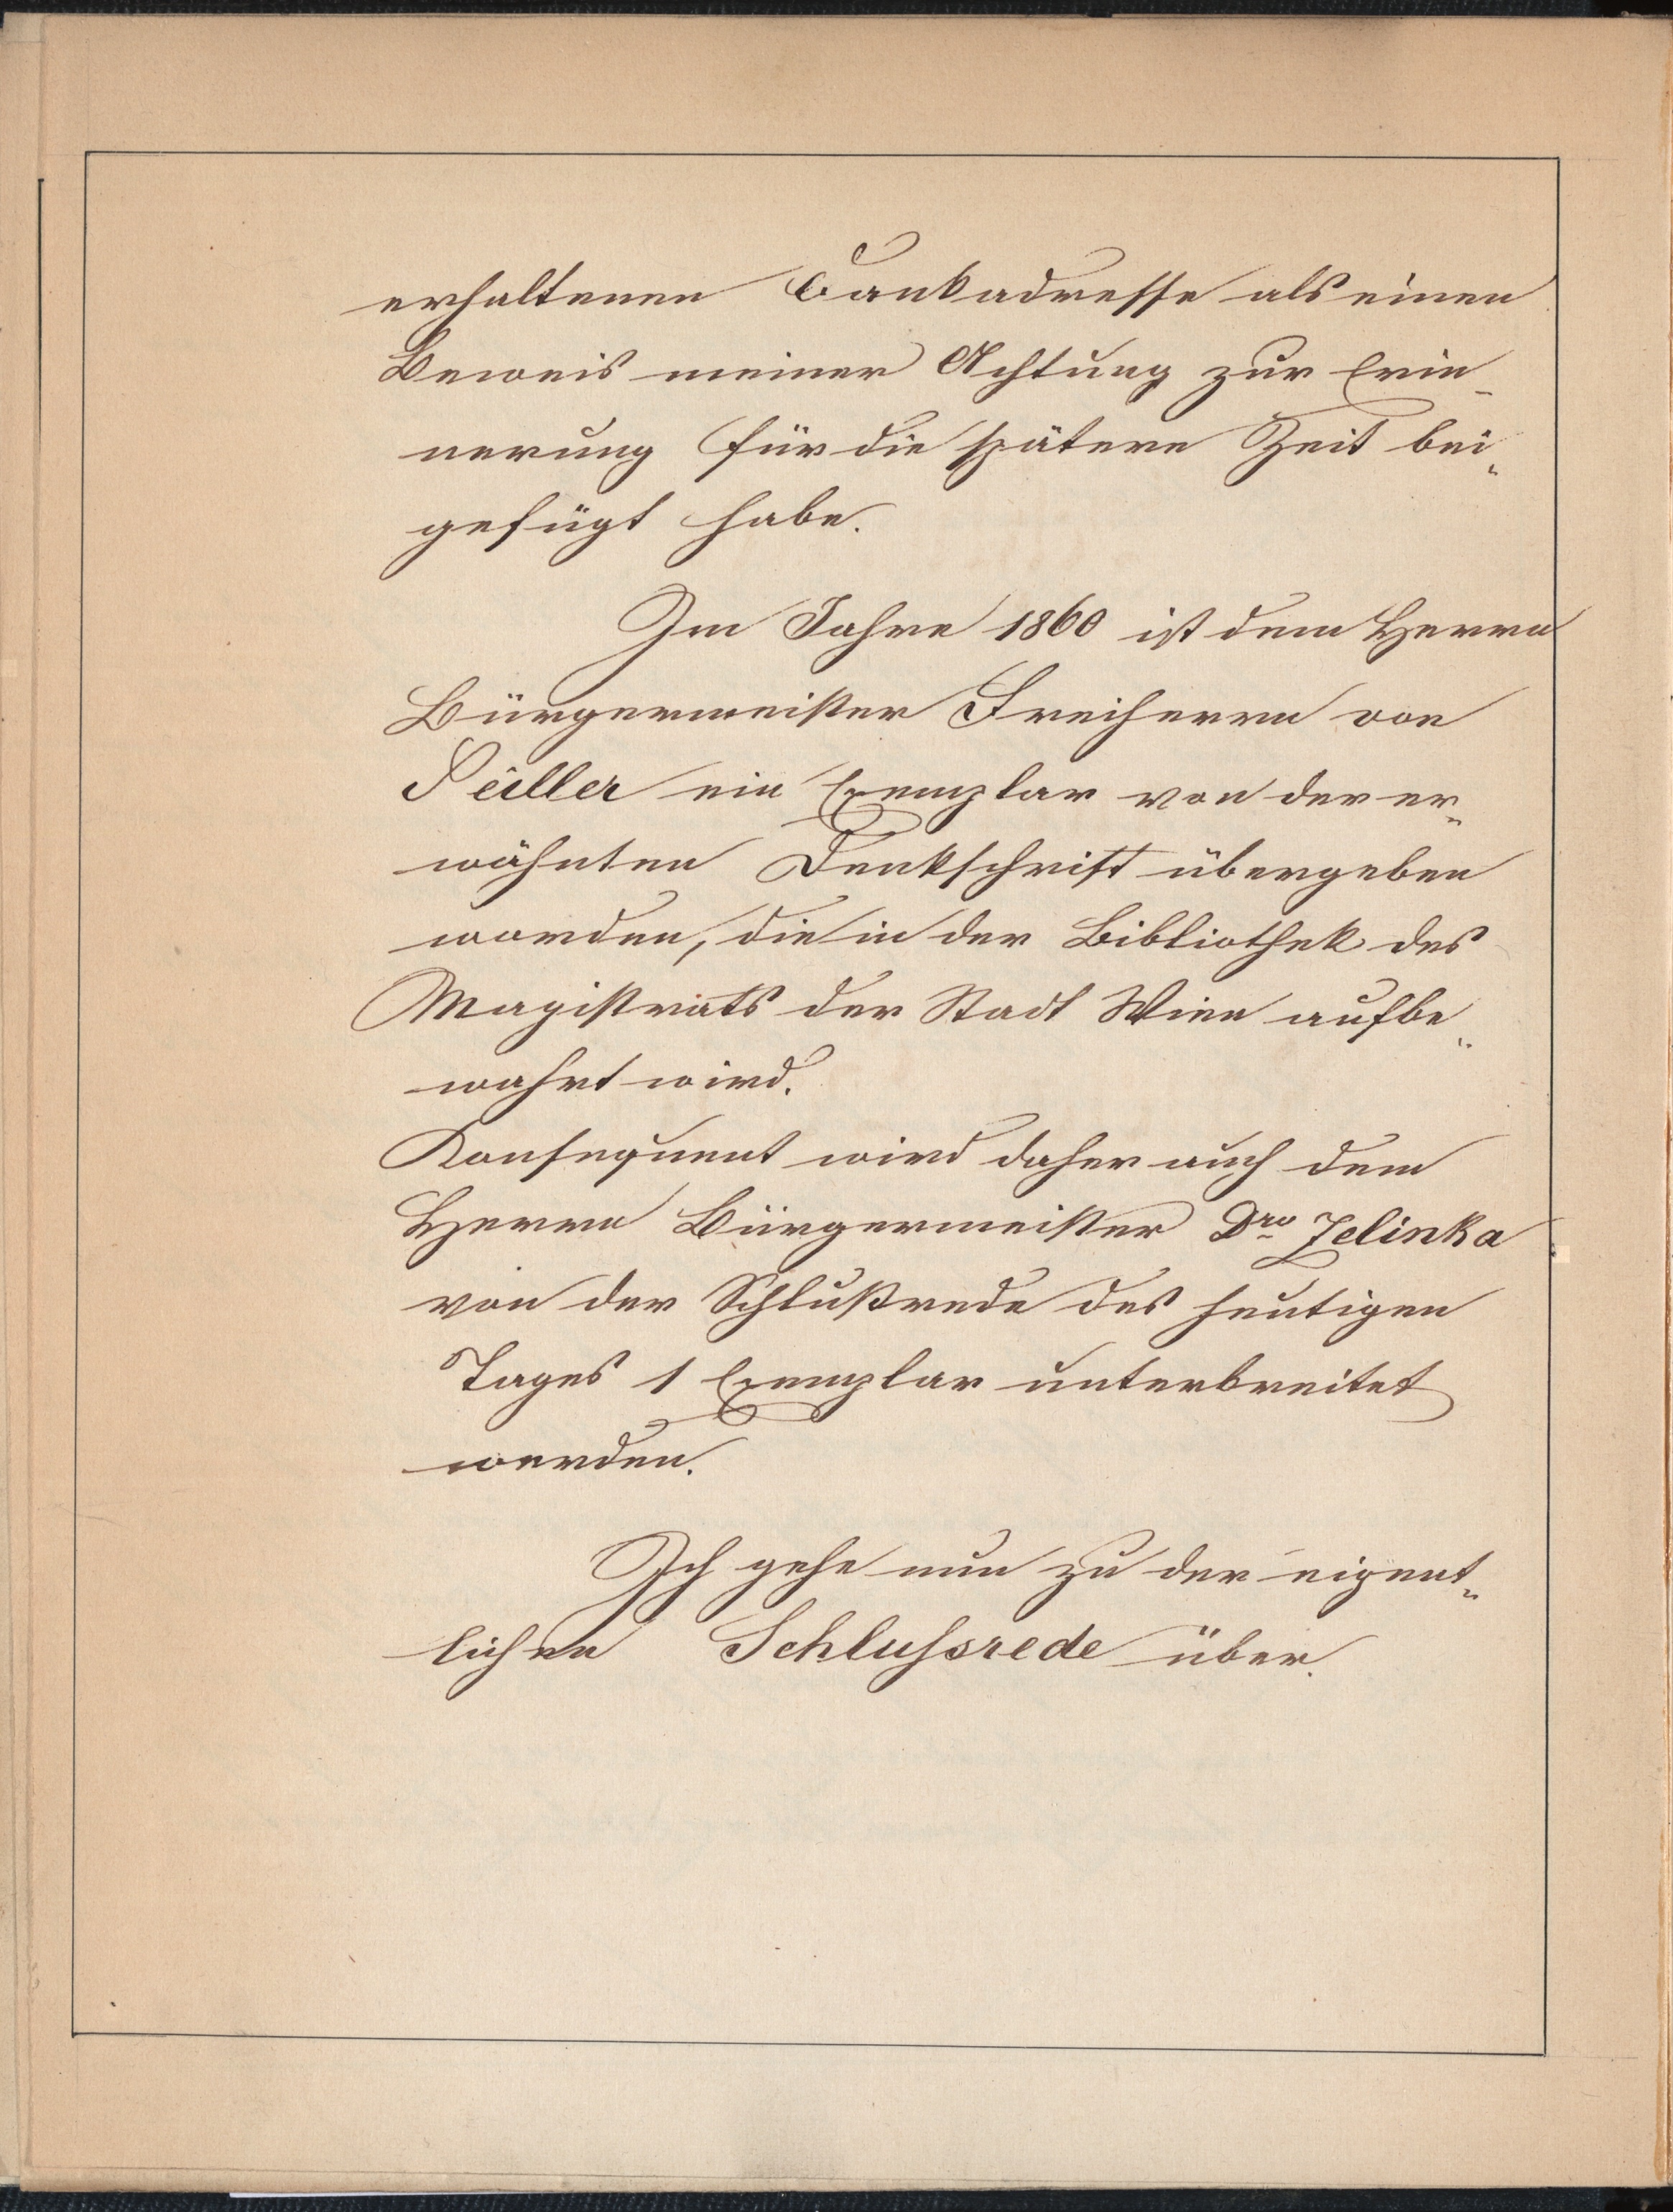 erhaltenen Dankadresse als einen
Beweis meiner Achtung zur Erin-
nerung für die spätere Zeit bei-
gefügt habe.
Im Jahre 1860 ist dem Herrn
Bürgermeister Freiherrn von
Seiller ein Exemplar von der er-
wähnten Denkschrift übergeben
worden, die in der Bibliothek des
Magistrats der Stadt Wien aufbe-
wahrt wird.
Konsequent wird daher auch dem
Herrn Bürgermeister Dro Zelinka
von der Schlußrede des heutigen
Tages 1 Exemplar unterbreitet
werden.
Ich gehe nun zu der eigent-
lichen Schlussrede über.